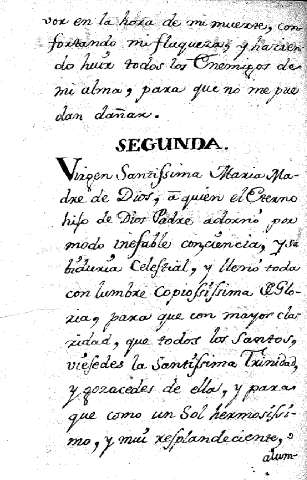 vor en la hora de mi muerte, con
fortando mi flaqueza, y hacien
do huir todos los Enemigos de
mi alma, para que no me pue
dan dañar.
SEGUNDA.
Virgen Santissima Maria Ma-
dre de Dios, a quien el Eterno
hijo de Dios Padre adornó por
modo inefable con ciencia, y sa
biduria Celestial, y llenó toda
con lumbre copiosissima de Glo
ria, para que con mayor cla
ridad, que todos los Santos,
viesedes la Santissima Trinidad,
y gozacedes de ella, y para
que como un Sol hermosissi-
mo, y mui resplandeciente,
alum-